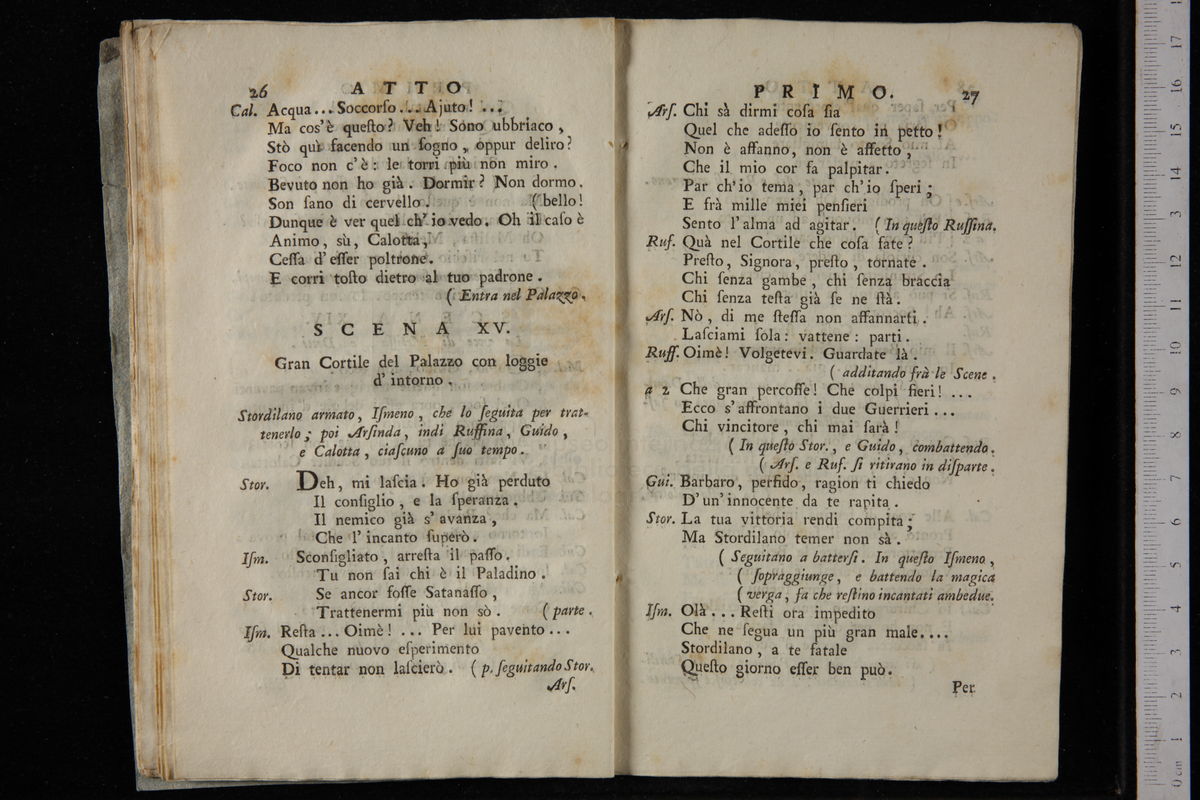 26 ATTO
Cal. Acqua... Soccorſo... Ajuto! ...
Ma cos'è queſto? Veh! Sono ubbriaco,
Stò quì facendo un ſogno, oppur deliro?
Foco non c'è: le torri più non miro.
Bevuto non ho già. Dormir? Non dormo.
Son ſano di cervello. (bello!
Dunque è ver quel ch' io vedo. Oh il caſo è
Animo, sù, Calotta,
Ceſſa d'eſſer poltrone.
E corri toſto dietro al tuo padrone.
( Entra nel Palazzo.
SCENA XV.
Gran Cortile del Palazzo con loggie
d' intorno.
Stordilano armato, Iſmeno, che lo ſeguita per trat-
tenerlo; poi Arſinda, indi Ruffina, Guido,
e Calotta, ciaſcuno a ſuo tempo.
Stor. Deh, mi laſcia. Ho già perduto
Il conſiglio, e la ſperanza.
Il nemico già s' avanza,
Che l' incanto ſuperò.
Iſm. Sconſigliato, arreſta il paſſo.
Tu non ſai chi è il Paladino.
Stor. Se ancor foſſe Satanaſſo,
Trattenermi più non sò. ( parte.
Iſm. Reſta... Oimè! ... Per lui pavento...
Qualche nuovo eſperimento
Di tentar non laſcierò. ( p. ſeguitando Stor.
Arſ.
PRIMO. 27
Arſ. Chi sà dirmi coſa ſia
Quel che adeſſo io ſento in petto!
Non è affanno, non è affetto,
Che il mio cor fa palpitar.
Par ch'io tema, par ch'io ſperi;
E frà mille miei penſieri
Sento l'alma ad agitar. ( In queſto Ruffina.
Ruf. Quà nel Cortile che coſa fate?
Preſto, Signora, preſto, tornate.
Chi ſenza gambe, chi ſenza braccia
Chi ſenza teſta già ſe ne ſtà.
Arſ. Nò, di me ſteſſa non affannarti.
Laſciami ſola: vattene: parti.
Ruff. Oimè! Volgetevi. Guardate là.
( additando frà le Scene.
a 2 Che gran percoſſe! Che colpi fieri! ...
Ecco s'affrontano i due Guerrieri...
Chi vincitore, chi mai ſarà!
( In queſto Stor., e Guido, combattendo.
( Arſ. e Ruf. ſi ritirano in diſparte.
Gui. Barbaro, perfido, ragion ti chiedo
D'un'innocente da te rapita.
Stor. La tua vittoria rendi compita;
Ma Stordilano temer non sà.
( Seguitano a batterſi. In queſto Iſmeno,
( ſopraggiunge, e battendo la magica
( verga, fa che reſtino incantati ambedue.
Iſm. Olà... Reſti ora impedito
Che ne ſegua un più gran male....
Stordilano, a te fatale
Queſto giorno eſſer ben può.
Per